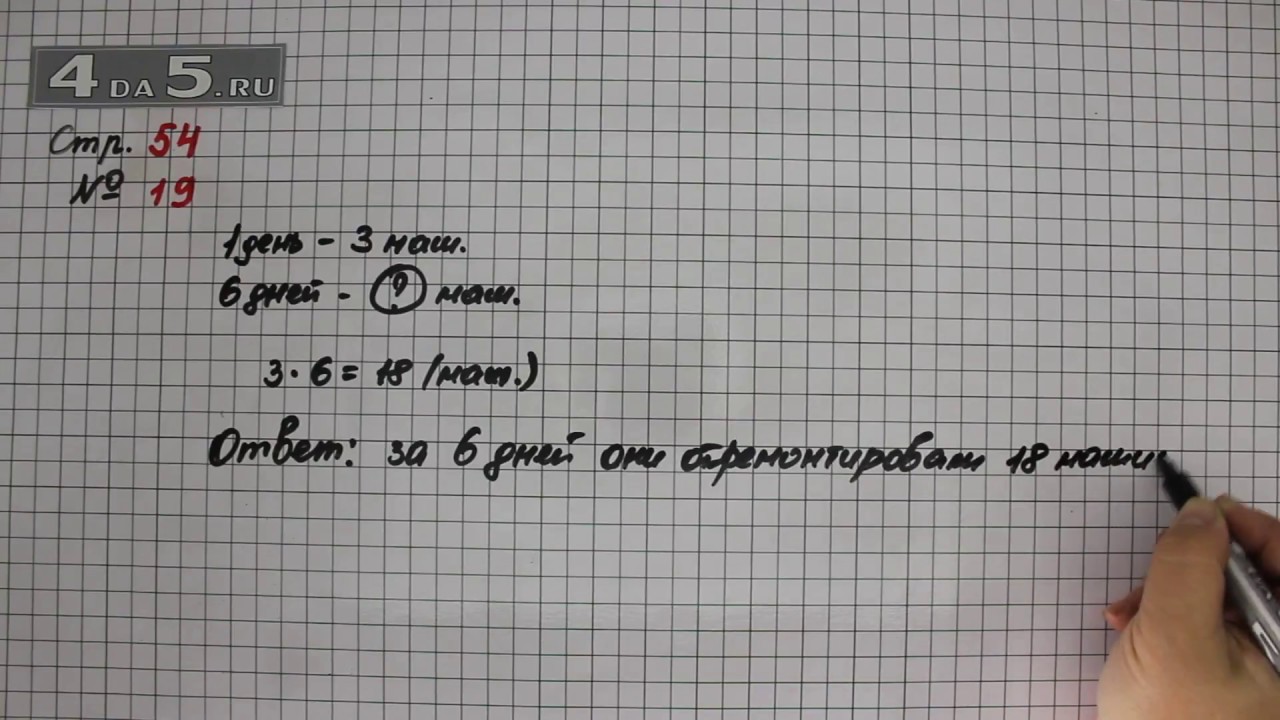 4DA5.RU
Стр. 54
№ 19
1 день - 3 маш.
6 дней - ? маш.
3 · 6 = 18 (маш.)
Ответ: за 6 дней они отремонтировали 18 маши